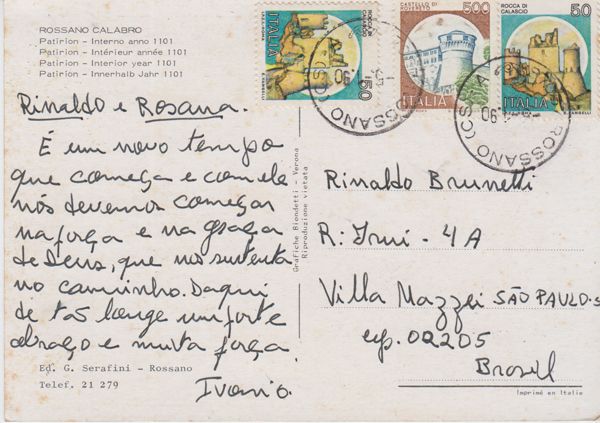 ROSSANO CALABRO
Patirion - Interno anno 1101
Patirion - Intérieur année 1101
Patirion - Interior year 1101
Patirion - Innerhalb Jahr 1101
ROCCA DI CALASCIO
ITALIA
50
CASTELLO DI ROVERETO
500
ITALIA
ROCCA DI CALASCIO
50
ITALIA
ROSSANO (CS)
Rinaldo e Rosana.
É um novo tempo
que começa e com ele
nós devemos começar
na força e na graça
de Deus, que nos sustenta
no caminho. Daqui
de tão longe um forte
abraço e muita força.
Ivanio.
Ed. G. Serafini - Rossano
Telef. 21 279
Grafiche Biondetti - Verona
Riproduzione vietata
Rinaldo Brunetti
R: - 4A
Villa Mazzei SÃO PAULO.S
cep. 02205
Brasil
Imprimé en Italie